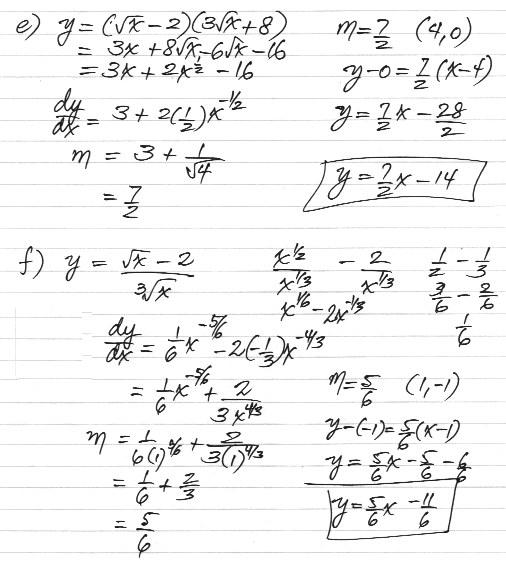 e) y = (√x - 2)(3√x + 8)
= 3x + 8√x - 6√x - 16
= 3x + 2x^½ - 16
dy/dx = 3 + 2(1/2)x^-1/2
m = 3 + 1/√4
= 7/2
m = 7/2 (4,0)
y - 0 = 7/2 (x - 4)
y = 7/2 x - 28/2
y = 7/2 x - 14
f) y = (√x - 2)/(³√x)
x^1/2/x^1/3 - 2/x^1/3
x^1/6 - 2x^-1/3
1/2 - 1/3
3/6 - 2/6
1/6
dy/dx = 1/6 x^-5/6 - 2(-1/3)x^-4/3
= 1/6 x^-5/6 + 2/(3x^4/3)
m = 1/(6(1)^5/6) + 2/(3(1)^4/3)
= 1/6 + 2/3
= 5/6
m = 5/6 (1,-1)
y - (-1) = 5/6 (x - 1)
y = 5/6 x - 5/6 - 6/6
y = 5/6 x - 11/6